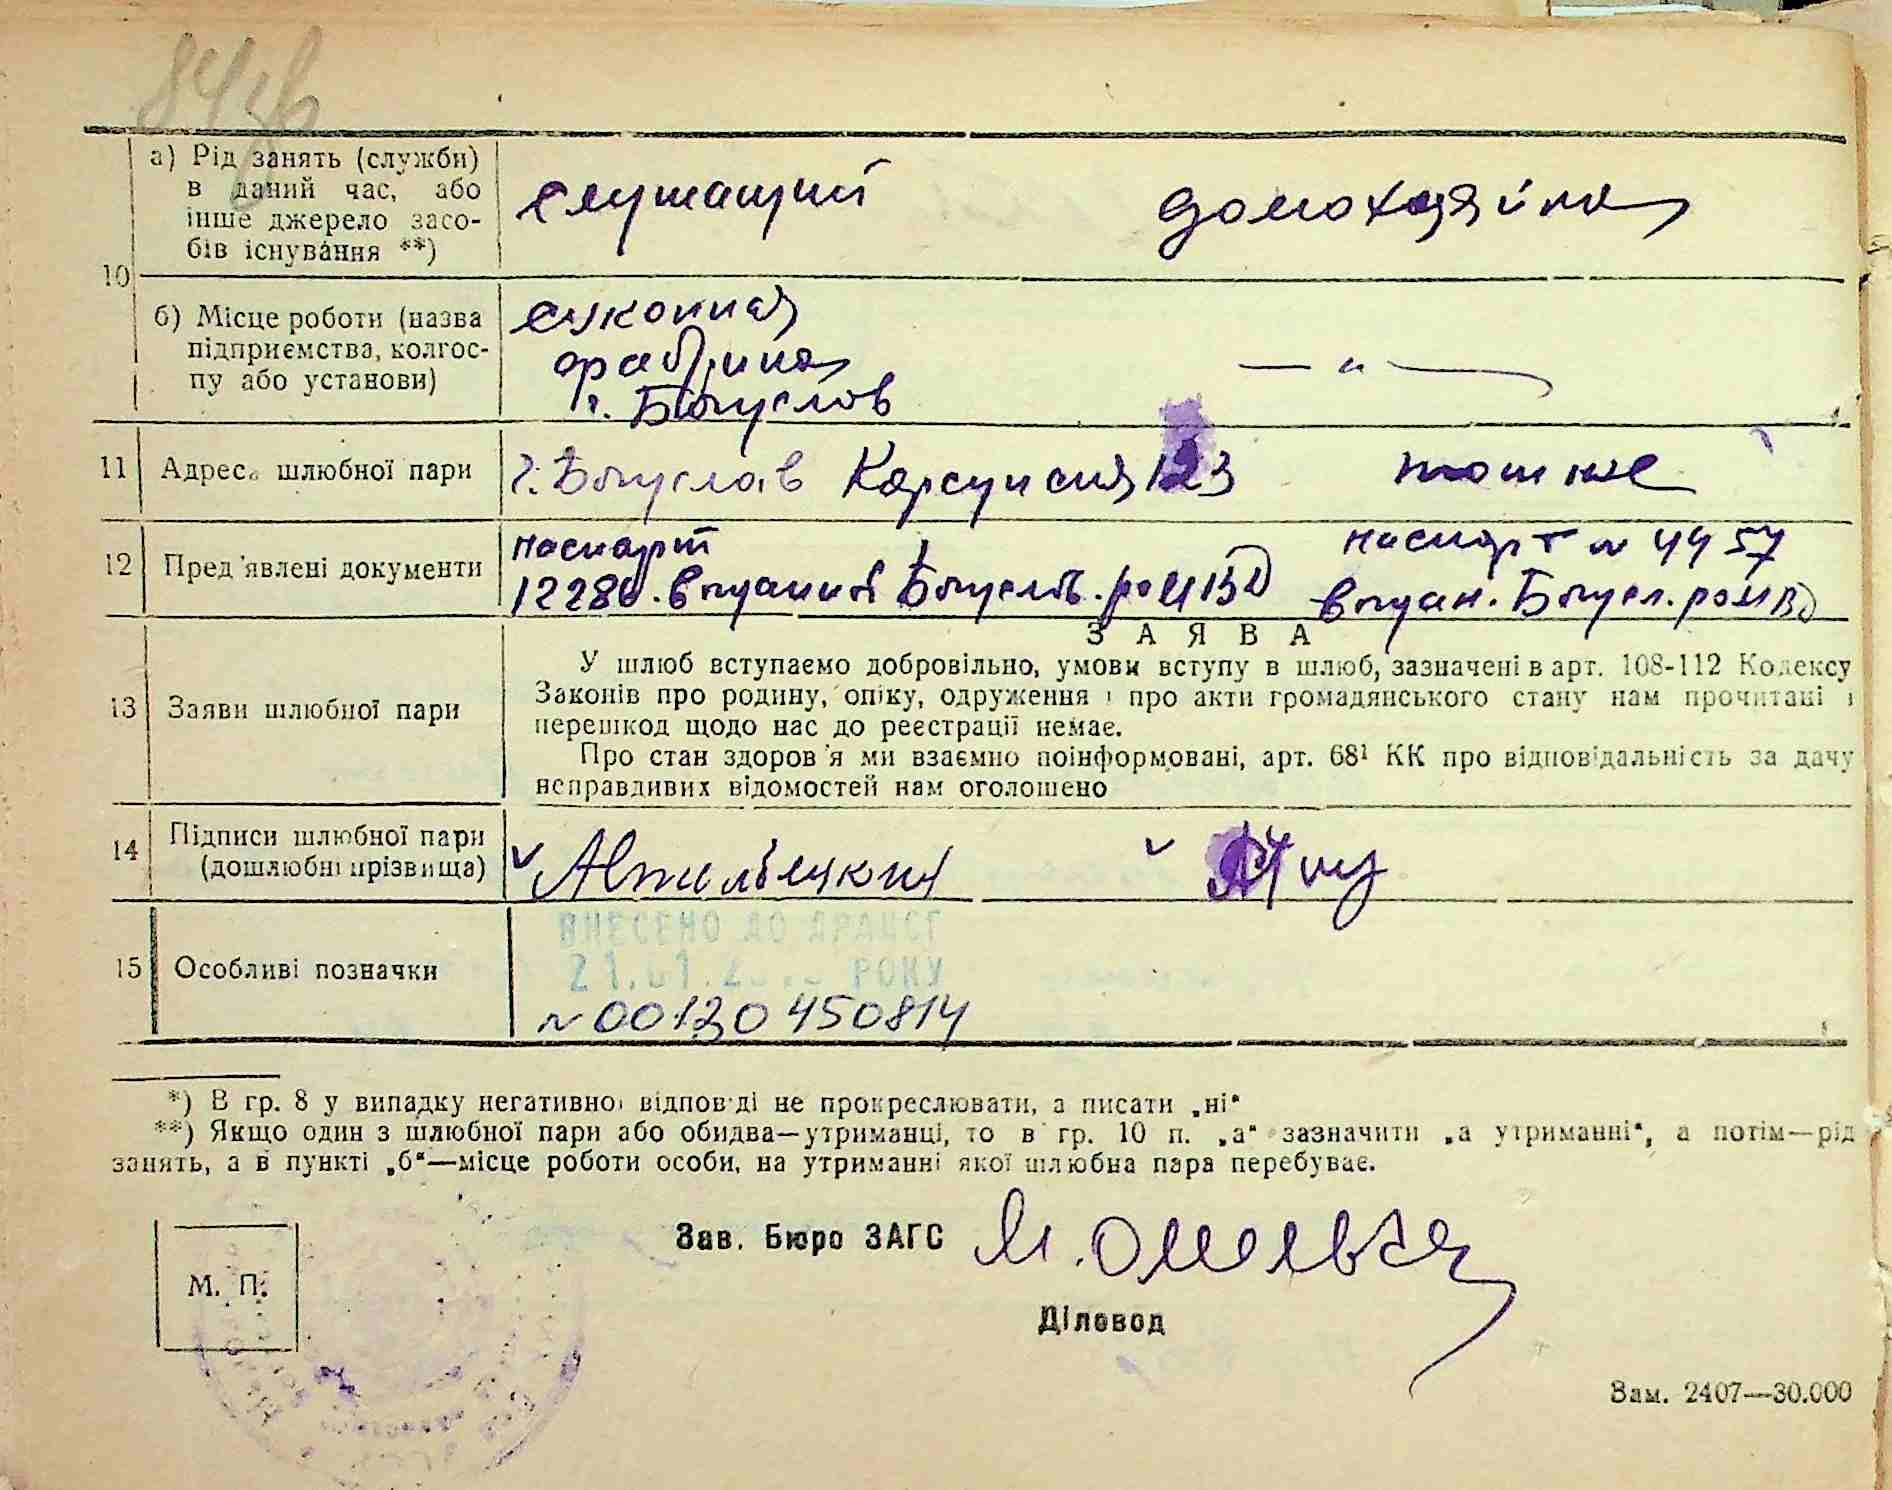 84 зв
а) Рід занять (служби)
в даний час, або
інше джерело засо-
бів існування **)
служащий домохазяйка
10
б) Місце роботи (назва
підприємства, колгос-
пу або установи)
суконная
фабрика
г. Богуслав
— " —
11 Адреса шлюбної пари г. Богуслав Корсунская 123 то же
12 Пред'явлені документи
паспорт
12280. выданий Богуслав. РОМВД
паспорт № 4457
выдан. Богусл. РОМВД
ЗАЯВА
13 Заяви шлюбної пари
У шлюб вступаємо добровільно, умови вступу в шлюб, зазначені в арт. 108-112 Кодексу
Законів про родину, опіку, одруження і про акти громадянського стану нам прочитані і
перешкод щодо нас до реєстрації немає.
Про стан здоров'я ми взаємно поінформовані, арт. 68¹ КК про відповідальність за дачу
неправдивих відомостей нам оголошено
14 Підписи шлюбної пари
(дошлюбні прізвища)
15 Особливі позначки
ВНЕСЕНО ДО ДРАЦСГ
21.01. РОКУ
№ 00120450814
*) В гр. 8 у випадку негативної відповіді не прокреслювати, а писати „ні“
**) Якщо один з шлюбної пари або обидва—утриманці, то в гр. 10 п. „а“ зазначити „а утриманні“, а потім—рід
занять, а в пункті „б“—місце роботи особи, на утриманні якої шлюбна пара перебуває.
М. П.
Зав. Бюро ЗАГС
Діловод
Зам. 2407—30.000